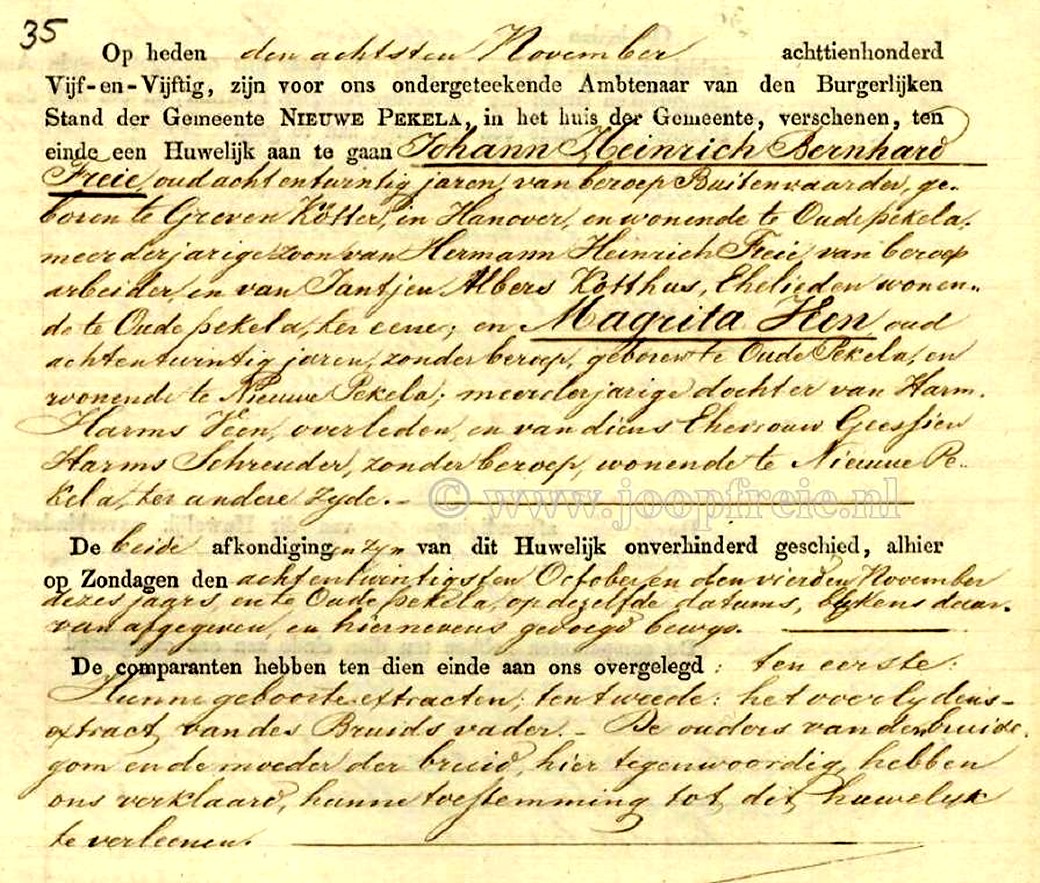 35
Op heden den achtsten November achttienhonderd
Vijf-en-Vijftig, zijn voor ons ondergeteekende Ambtenaar van den Burgerlijken
Stand der Gemeente NIEUWE PEKELA, in het huis der Gemeente, verschenen, ten
einde een Huwelijk aan te gaan Johann Heinrich Bernhard
Freie, oud achtentwintig jaren, van beroep Buitenvaarder, ge-
boren te Greven Kötter, in Hanover, en wonende te Oude pekela,
meerderjarige zoon van Hermann Heinrich Freie, van beroep
arbeider, en van Jantjen Albers Kotthus, Ehelieden wonen-
de te Oude pekela, ter eene; en Magrita Hen, oud
achtentwintig jaren, zonder beroep, geboren te Oude Pekela, en
wonende te Nieuwe Pekela; meerderjarige dochter van Harm
Harms Veen, overleden, en van diens Ehevrouw Geessien
Harms Schreuder, zonder beroep, wonende te Nieuwe Pe-
kela, ter andere zyde.
© www.joopfreie.nl
De beide afkondigingen zyn van dit Huwelijk onverhinderd geschied, alhier
op Zondagen den achtentwintigsten October en den vierden November
dezes jaars, en te Oude pekela, op dezelfde datums, blykens daar-
van afgegeven, en hiernevens gevoegd bewys.
De comparanten hebben ten dien einde aan ons overgelegd : ten eerste:
Hunne geboorte extracten; ten tweede: het overlydens-
extract van des Bruids vader. - De ouders van den bruide-
gom en de moeder der bruid, hier tegenwoordig, hebben
ons verklaard, hunne toestemming tot dit huwelyk
te verleenen.